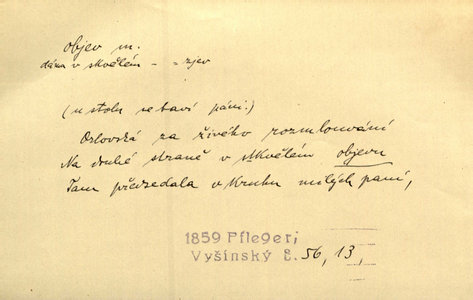 objev m.
dáma v skvělém - = zjev
(u stolu se baví páni.)
Orlovská za živého rozmlouvání
Na druhé straně v skvělém objevu
Tam předsedala v kruhu milých paní,
1859 Pfleger,
Vyšínský 2. 56, 13,